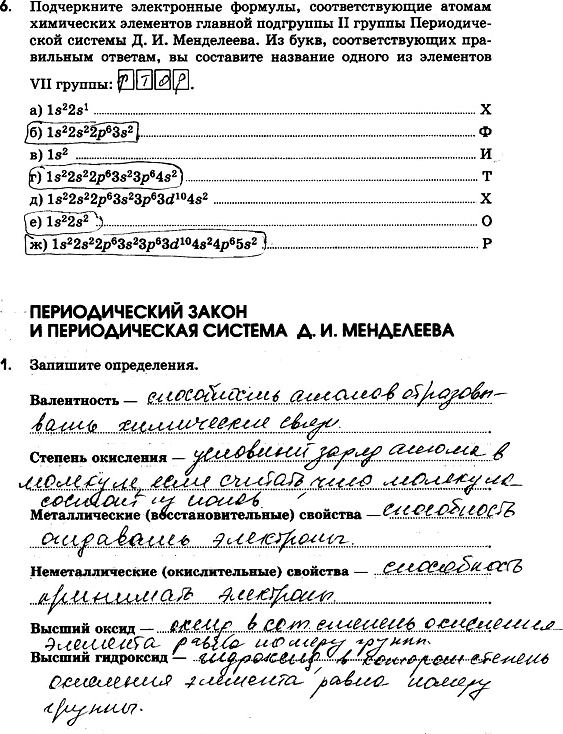 6. Подчеркните электронные формулы, соответствующие атомам
химических элементов главной подгруппы II группы Периодиче-
ской системы Д. И. Менделеева. Из букв, соответствующих пра-
вильным ответам, вы составите название одного из элементов
VII группы: ФТОР.
а) 1s²2s¹ Х
б) 1s²2s²2p⁶3s² Ф
в) 1s² И
г) 1s²2s²2p⁶3s²3p⁶4s² Т
д) 1s²2s²2p⁶3s²3p⁶3d¹⁰4s² Х
е) 1s²2s² О
ж) 1s²2s²2p⁶3s²3p⁶3d¹⁰4s²4p⁶5s² Р
ПЕРИОДИЧЕСКИЙ ЗАКОН
И ПЕРИОДИЧЕСКАЯ СИСТЕМА Д. И. МЕНДЕЛЕЕВА
1. Запишите определения.
Валентность — способность атомов образовы-
вать химические связи.
Степень окисления — условный заряд атома в
молекуле, если считать, что молекула
состоит из ионов.
Металлические (восстановительные) свойства — способность
отдавать электроны.
Неметаллические (окислительные) свойства — способность
принимать электроны
Высший оксид — оксид в кот. степень окисления
элемента равна номеру групп.
Высший гидроксид — гидроксид, в котором степень
окисления элемента равна номеру
группы.